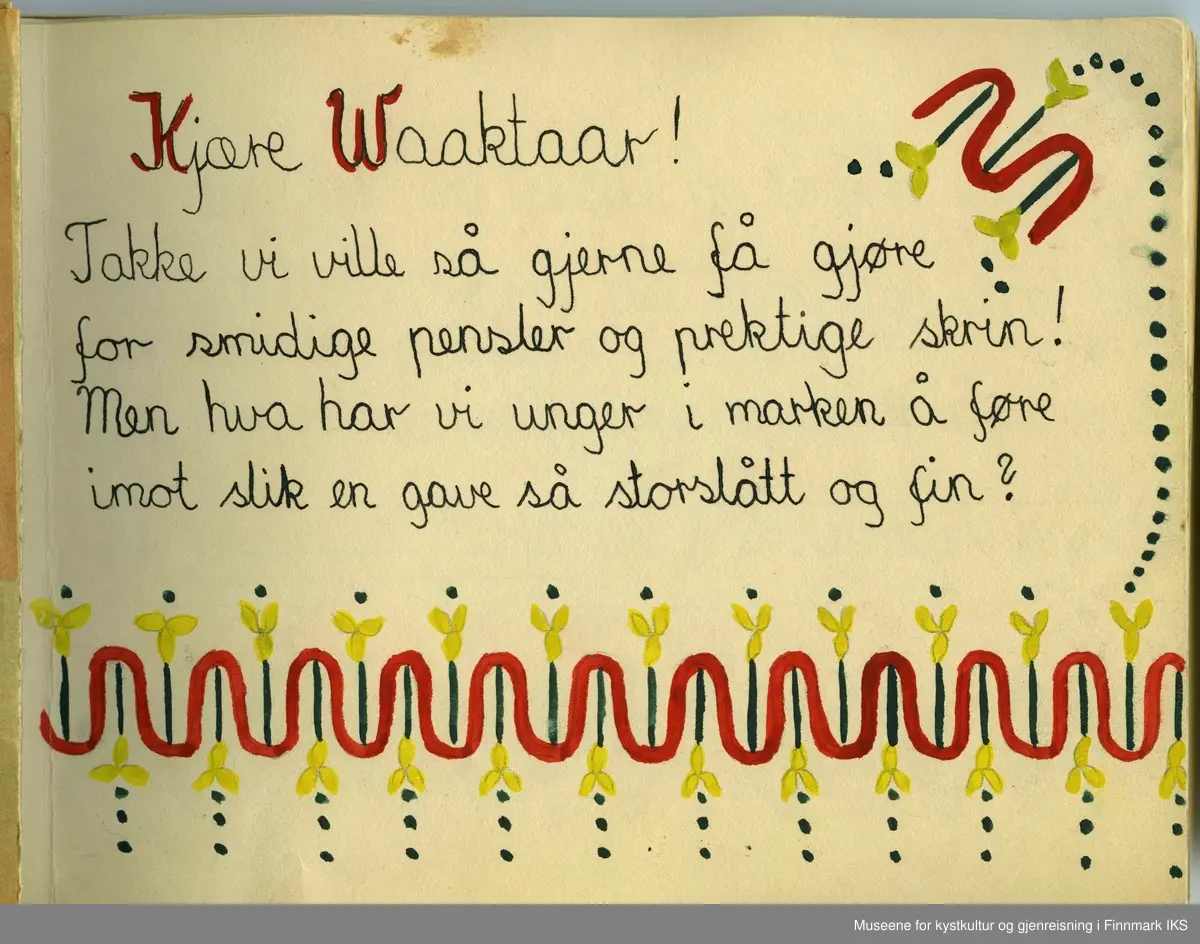 Kjære Waaktaar!
Takke vi ville så gjerne få gjøre
for smidige pensler og prektige skrin!
Men hva har vi unger i marken å føre
imot slik en gave så storslått og fin?
Museene for kystkultur og gjenreisning i Finnmark IKS